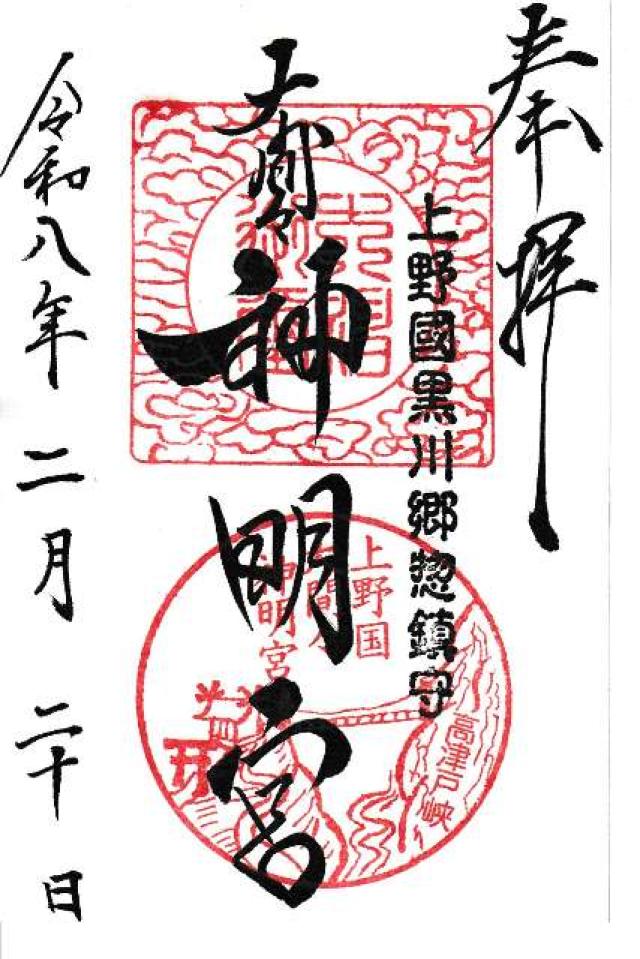 奉拝
上野國黒川郷惣鎮守
大間々
神明宮
令和八年 二月 二十日
上野国
神明宮
高津戸峡